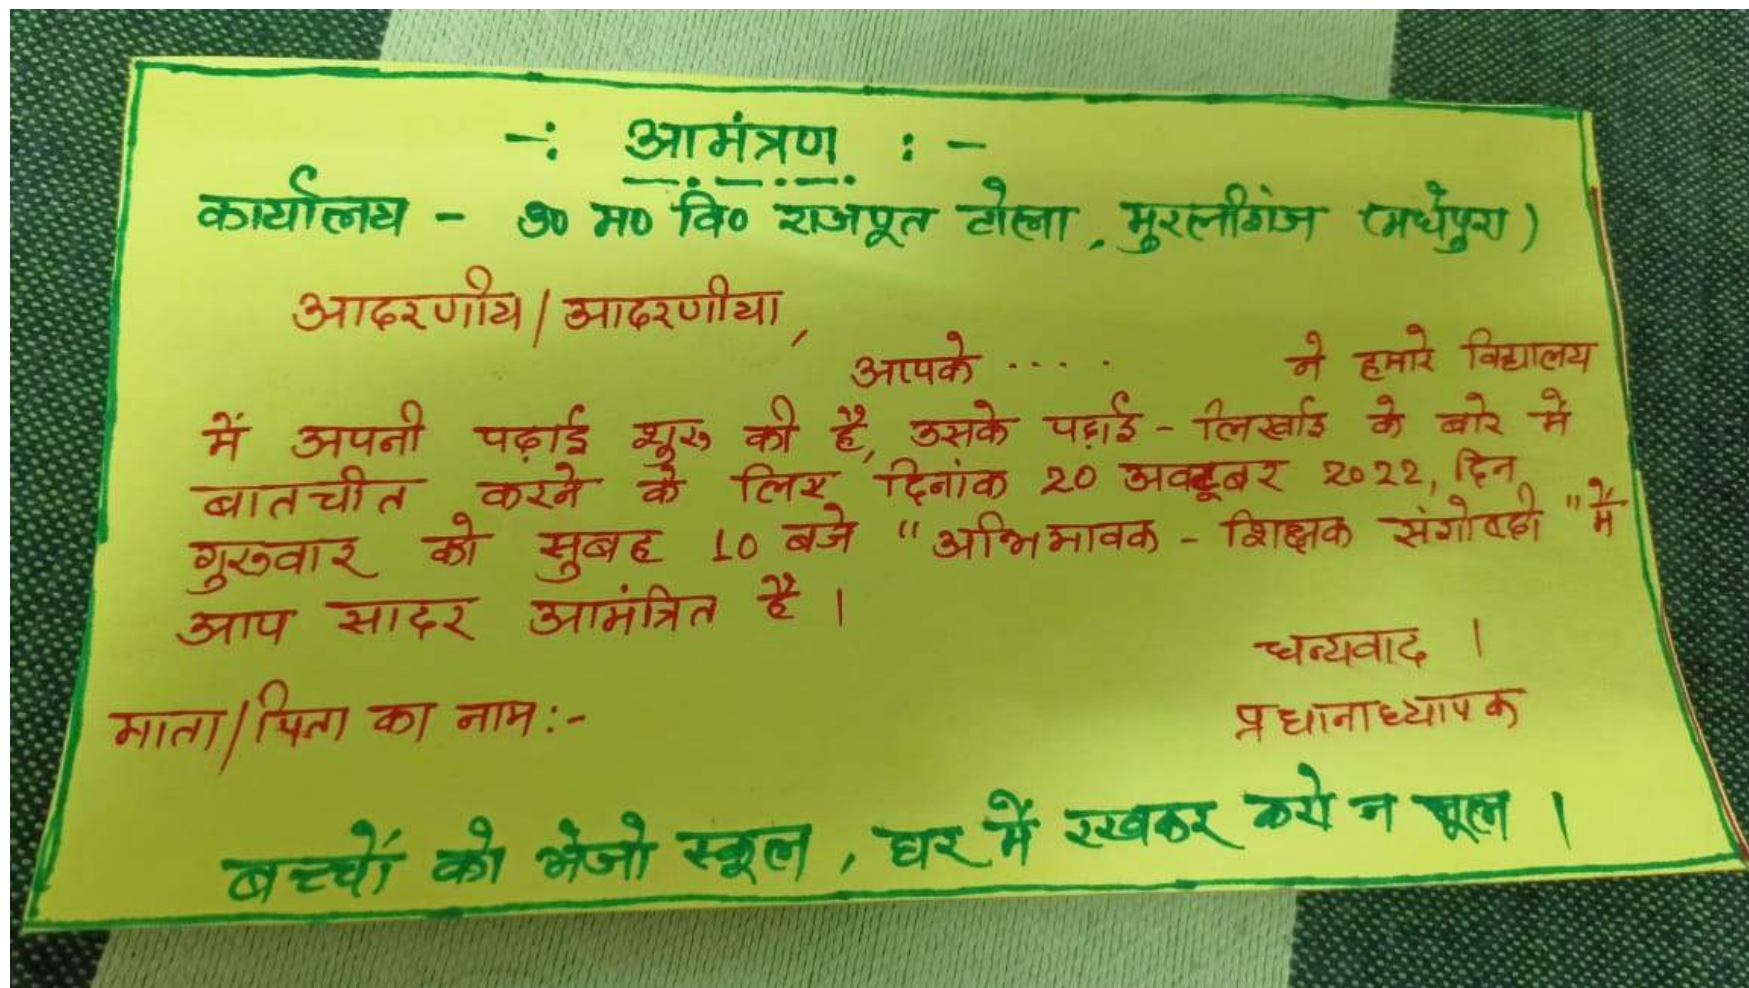 -: आमंत्रण :-
कार्यालय - उ० म० वि० राजपूत टोला, मुरलीगंज (मधेपुरा)
आदरणीय/आदरणीया,
आपके ..... ने हमारे विद्यालय
में अपनी पढ़ाई शुरु की है, उसके पढ़ाई-लिखाई के बारे में
बातचीत करने के लिए दिनांक 20 अक्टूबर 2022, दिन
गुरुवार को सुबह 10 बजे "अभिभावक - शिक्षक संगोष्ठी" में
आप सादर आमंत्रित है।
धन्यवाद।
माता/पिता का नाम:-
प्रधानाध्यापक
बच्चों को भेजो स्कूल, घर में रखकर करो न भूल।